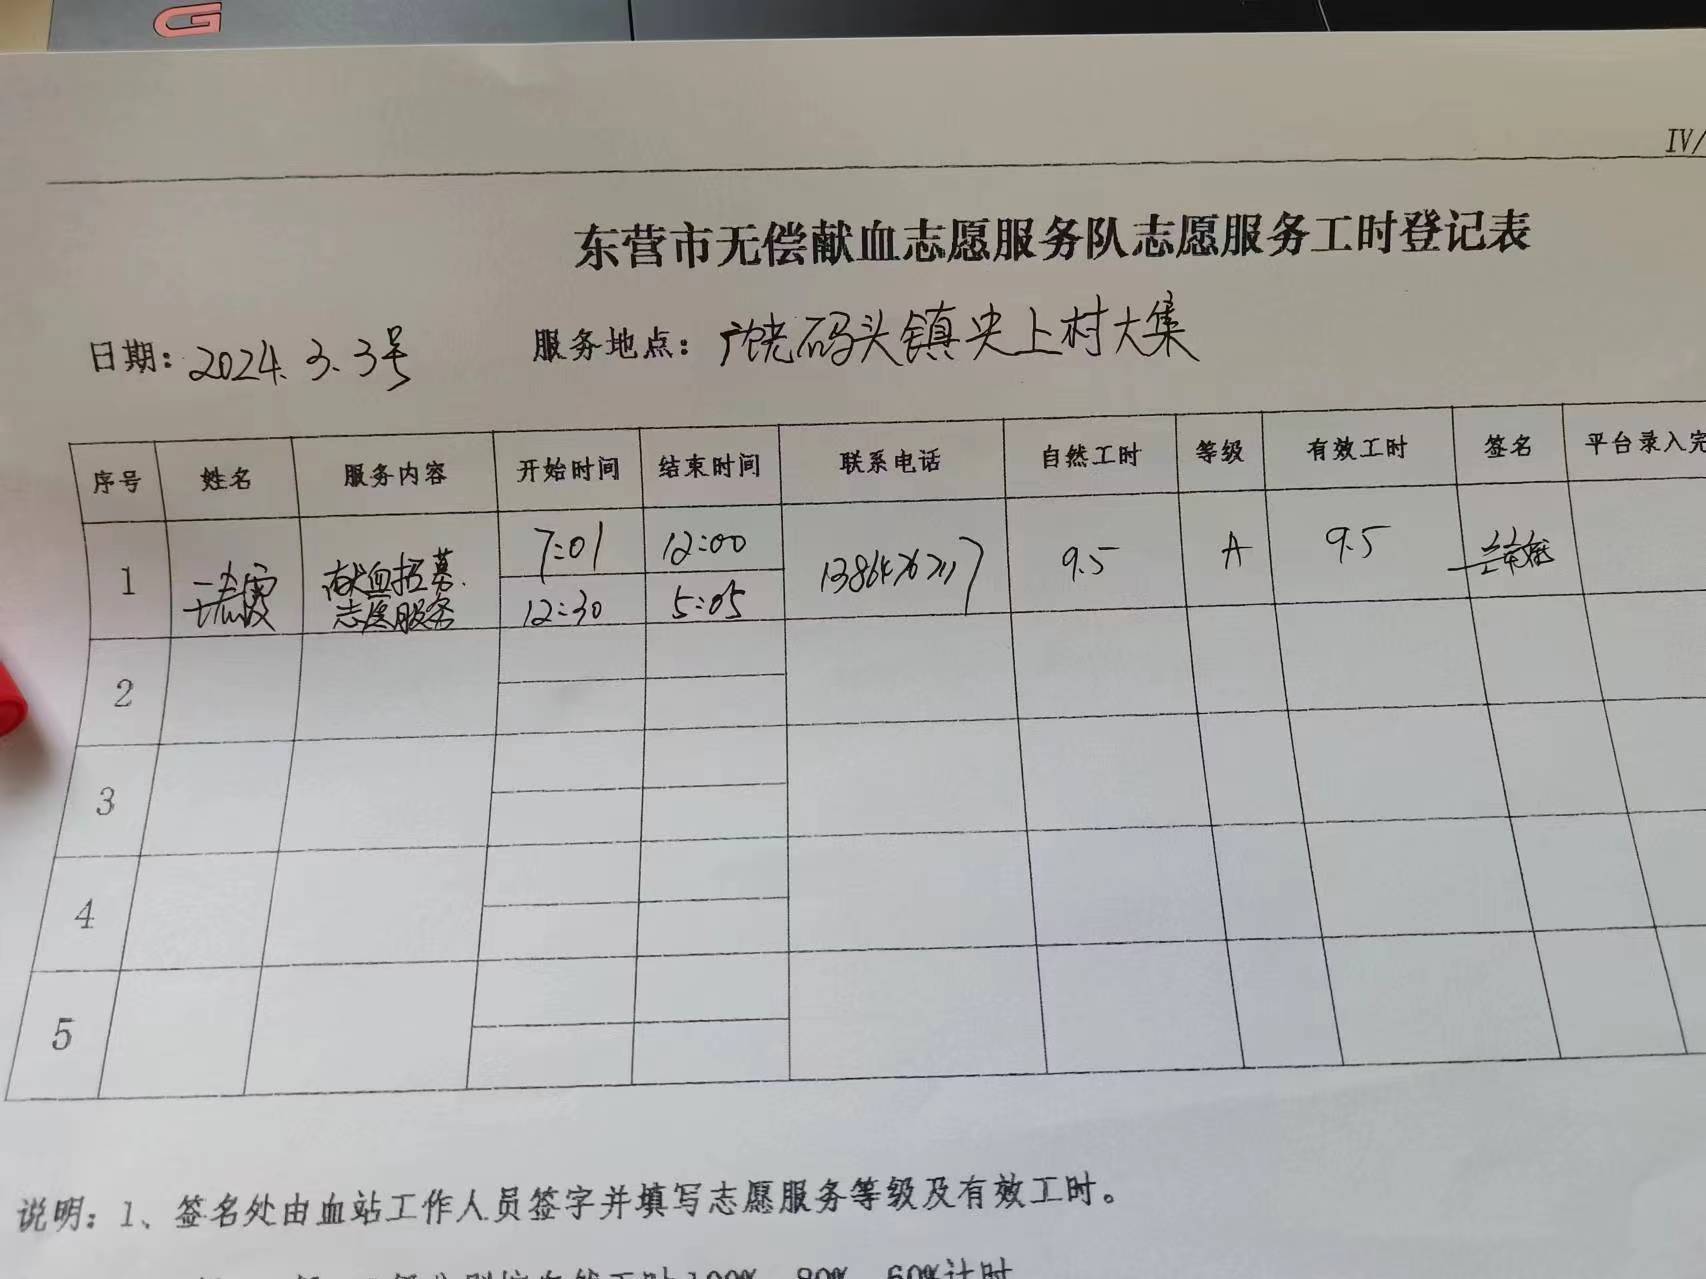 G
IV/
东营市无偿献血志愿服务队志愿服务工时登记表
日期：2024.3.3号 服务地点：广饶码头镇央上村大集
序号 姓名 服务内容 开始时间 结束时间 联系电话 自然工时 等级 有效工时 签名 平台录入完
1 献血招募 7:01 12:00 9.5 A 9.5
志愿服务 12:30 5:05
2
3
4
5
说明：1、签名处由血站工作人员签字并填写志愿服务等级及有效工时。
100%、80%、60%计时